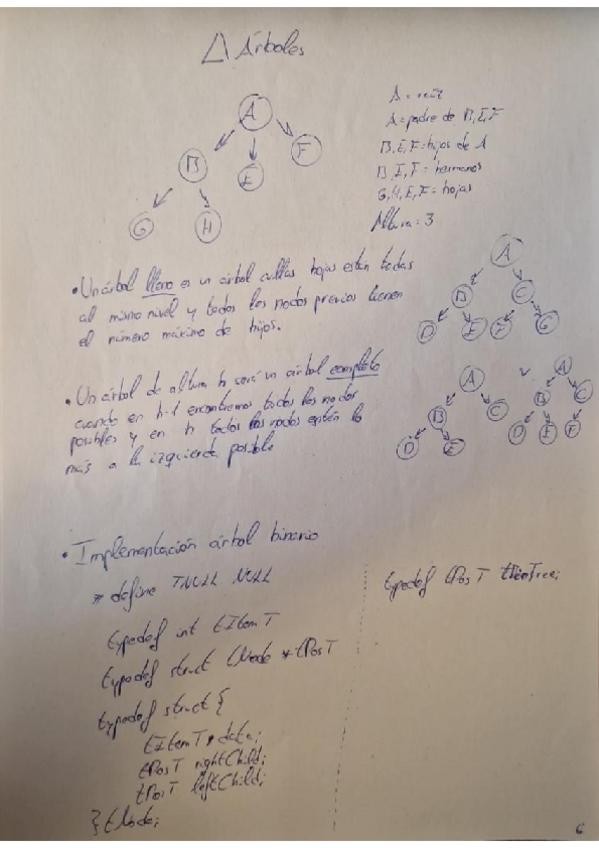 △ Árboles
A
B
E
F
G
H
A = raíz
A = padre de B, E, F
B, E, F = hijos de A
B, E, F = hermanos
G, H, E, F = hojas
Altura = 3
• Un árbol lleno es un árbol cullas hojas están todas
al mismo nivel y todos los nodos previos tienen
el número máximo de hijos.
A
B
C
D
E
F
G
• Un árbol de altura h será un árbol completo
cuando en h-1 encontremos todos los nodos
posibles y en h todos los nodos estén lo
más a la izquierda posible
A
B
C
D
E
A
B
C
D
E
F
• Implementación árbol binario
# define TNULL NULL
typedef int tItemT
typedef struct tNode * tPosT
typedef struct {
tItemT data;
tPosT rightChild;
tPosT leftChild;
} tNode;
typedef tPosT tBinTree;
6